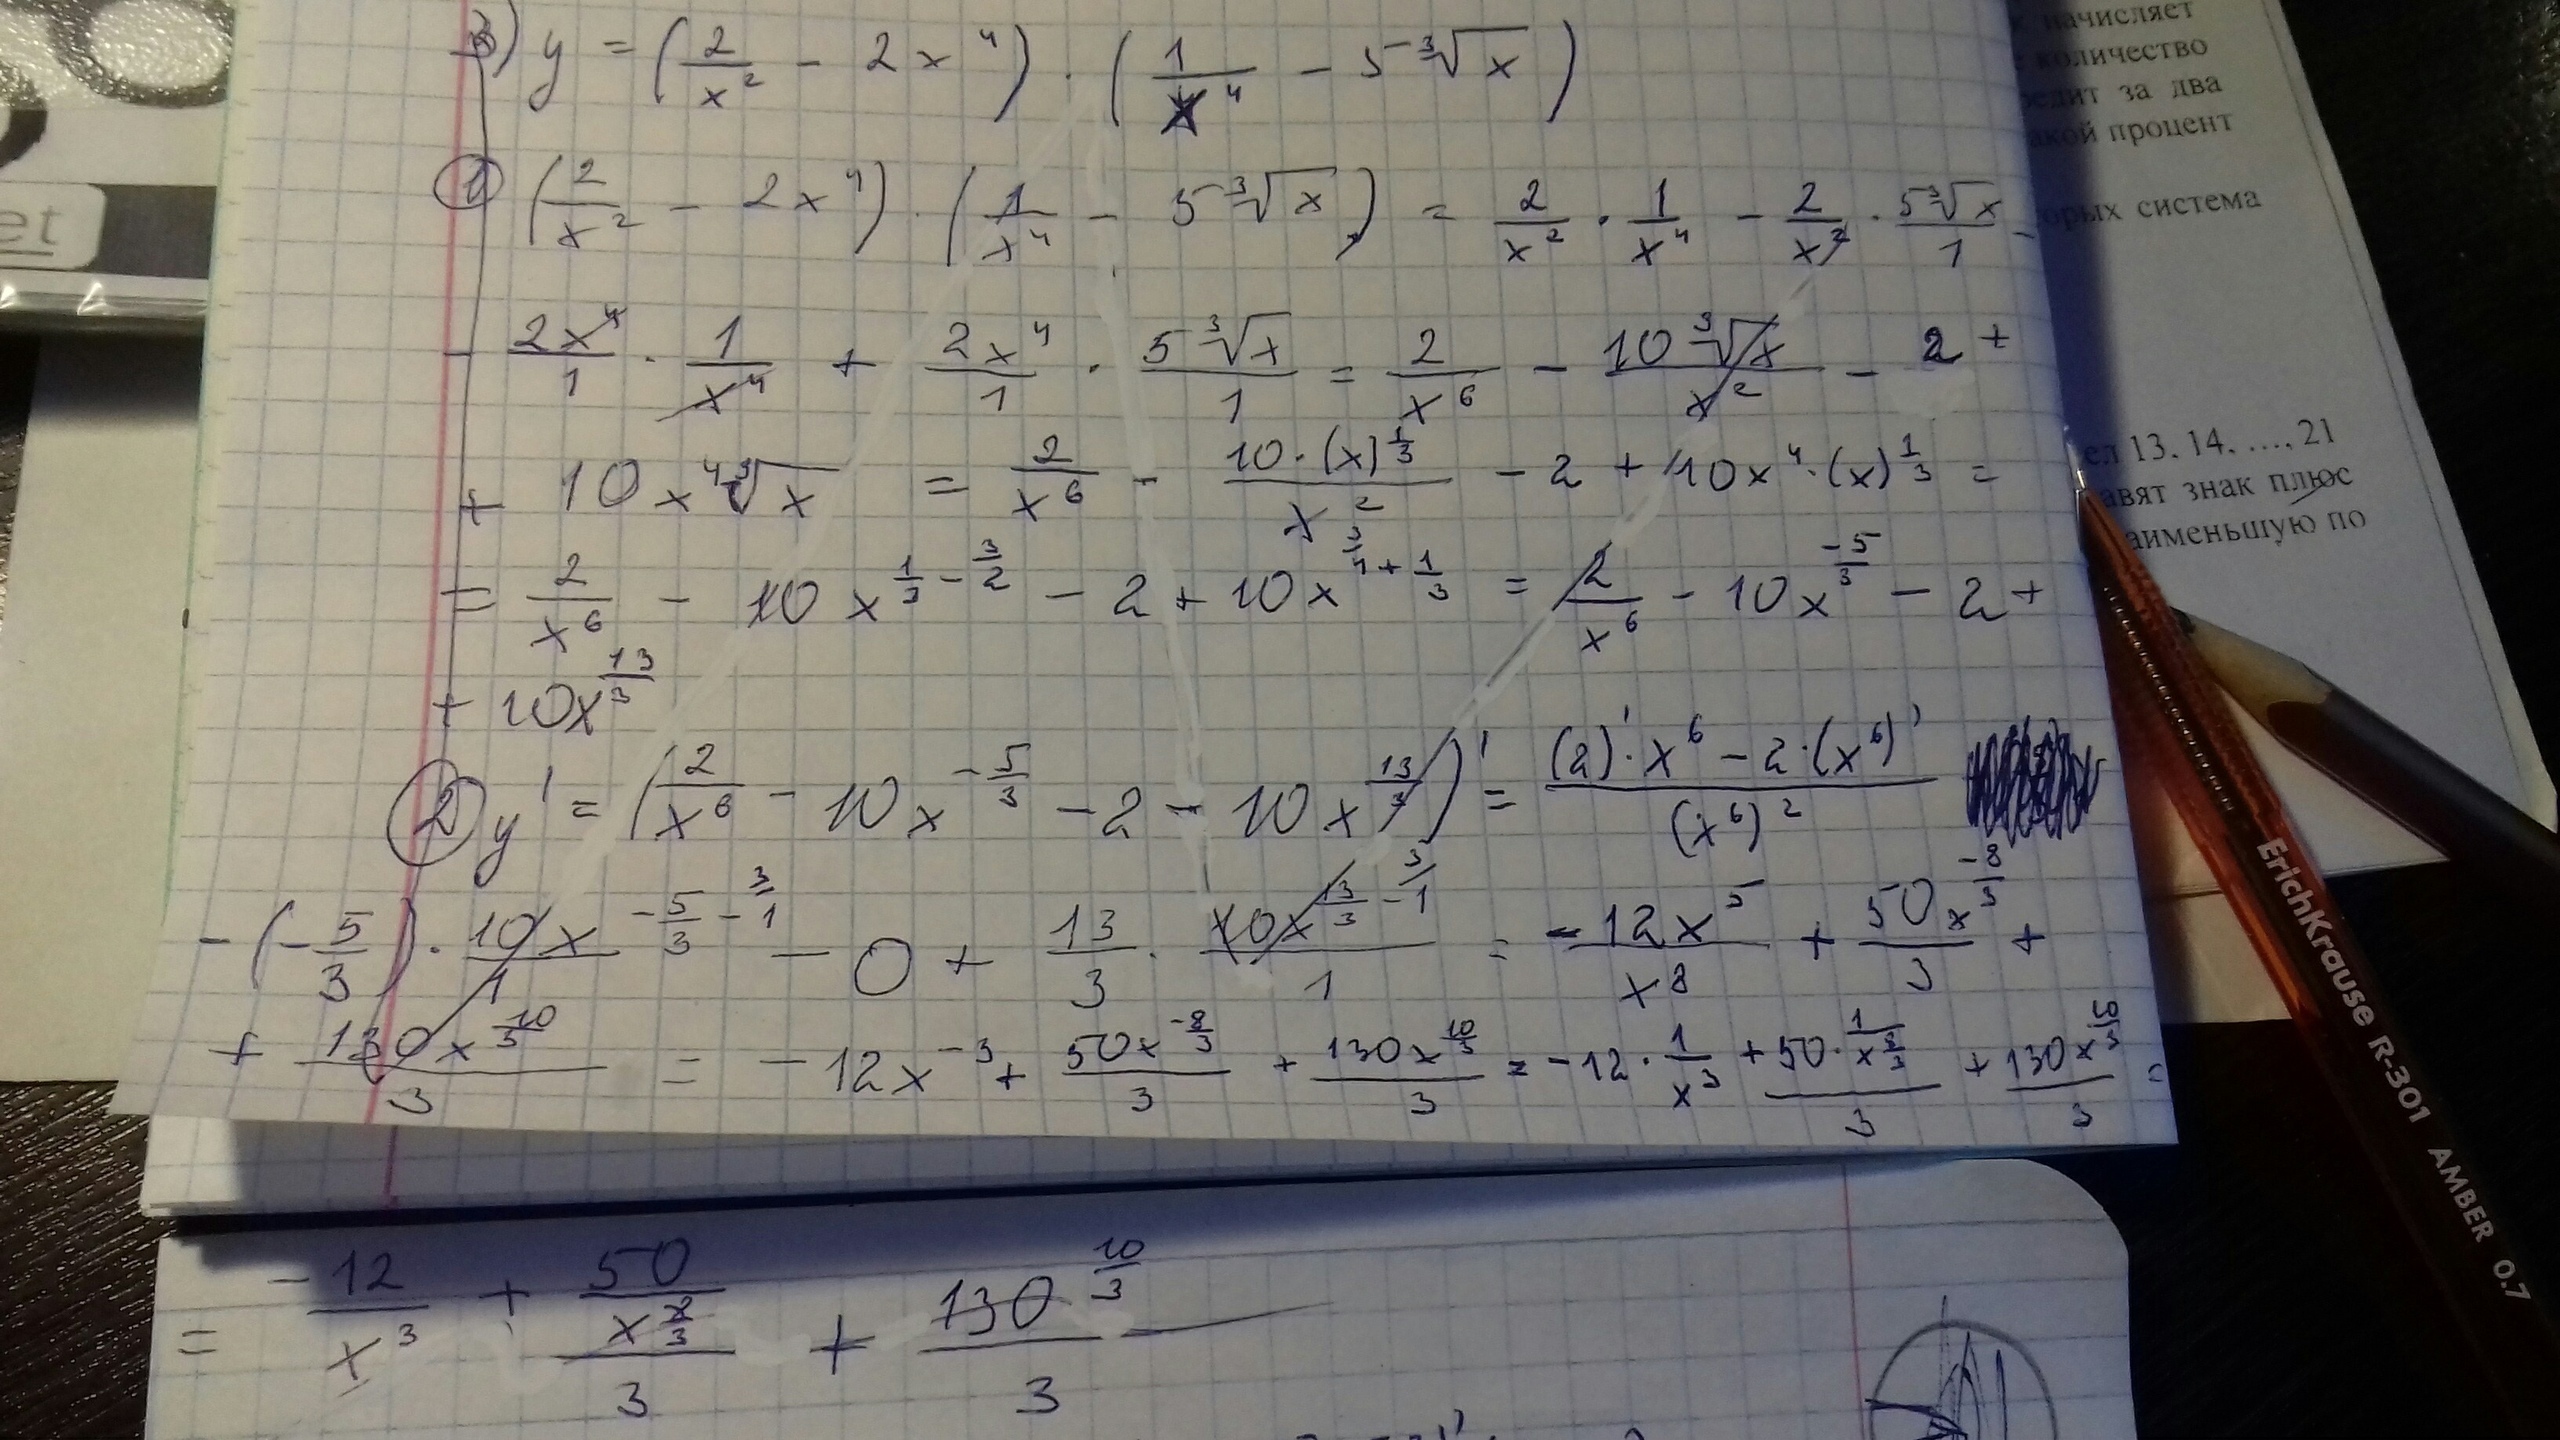 3) y = (2/x² - 2x⁴) · (1/x⁴ - 5 ³√x)
① (2/x² - 2x⁴) · (1/x⁴ - 5 ³√x) = 2/x² · 1/x⁴ - 2/x² · 5³√x/1 -
- 2x⁴/1 · 1/x⁴ + 2x⁴/1 · 5 ³√x/1 = 2/x⁶ - 10 ³√x/x² - 2 +
+ 10x⁴ ³√x = 2/x⁶ - 10·(x)^(1/3)/x² - 2 + 10x⁴·(x)^(1/3) =
= 2/x⁶ - 10x^(1/3 - 3/2) - 2 + 10x^(3/4 + 1/3) = 2/x⁶ - 10x^(-5/3) - 2 +
+ 10x^(13/3)
② y' = (2/x⁶ - 10x^(-5/3) - 2 - 10x^(13/3))' = ((2)'·x⁶ - 2·(x⁶)')/(x⁶)²
- (-5/3) · 10x^(-5/3 - 3/1)/1 - 0 + 13/3 · 10x^(13/3 - 3/1)/1 = -12x⁵/x⁸ + 50x^(-8/3)/3 +
+ 130x^(10/3)/3 = -12x⁻³ + 50x^(-8/3)/3 + 130x^(10/3)/3 = -12 · 1/x³ + 50·1/x^(8/3)/3 + 130x^(10/3)/3 =
= -12/x³ + 50/x^(8/3)/3 + 130^(10/3)/3
начисляет
количество
за два
процент
система
13. 14. ..., 21
авят знак плюс
аименьшую по
et
ErichKrause R-301 AMBER 0.7